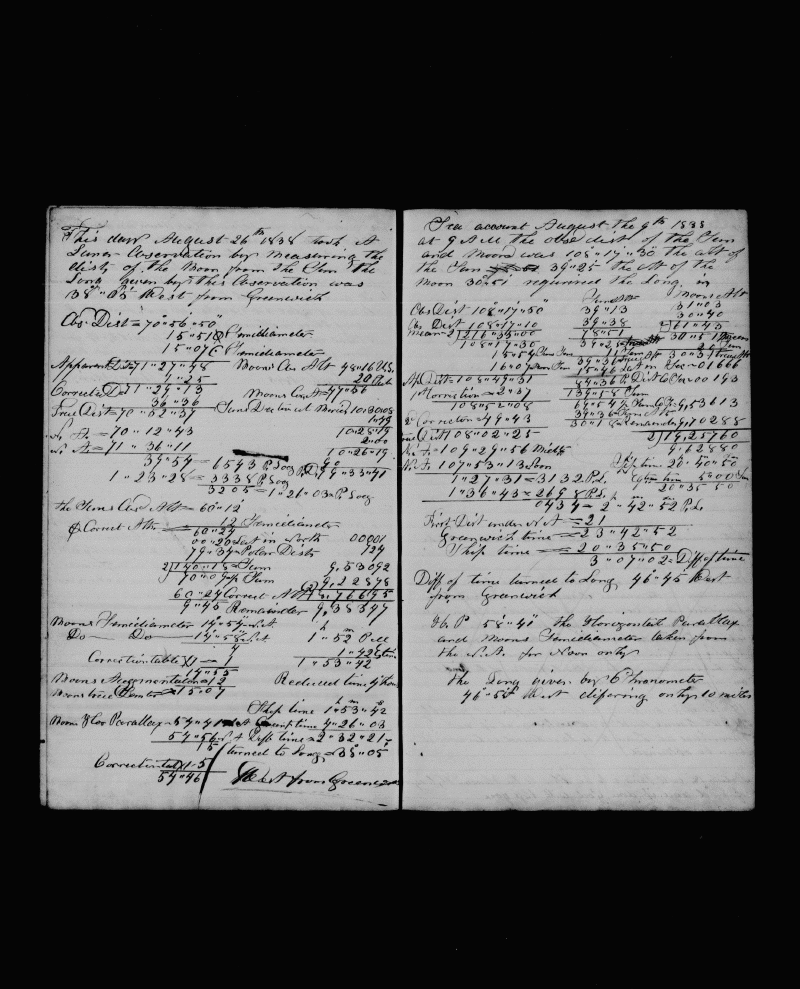 This day August 26th 1838 took A
Lunar Observation by measuring the
dists of the Moon from the Sun the
Long given by this Observation was
38° 05 West from Greenwich
Obs Dist = 70°"56"50"
15"51 Semidiameter
15"07 Semidiameter
Apparent Dis 71"27"48 Moons Cen Alt 48"16
1"25
Correcte D 71"29"13 Moons Cen A 47"56
36"36
True Dist = 70"52"37 Suns Declinat
N A = 70"12"43 10"28"19
N A = 71"36"11 2"00
10"26"19
39"54 = 6543 P Log 90
1"23"28 = 3338 P Log 79"33"41
3205 = 1"26"03 P Log
the Suns Cen Alt = 60"12
12 Semidiameter
Correct Alt = 60"24
00"20 Lat in North 00001
79"34 Polar Dists 724
2)140"18 = Sum 9,53092
70"09 ½ Sum 9,22878
60"24 Correct Alt
9"45 Remainder 9,38347
Moons Semidiameter 14"54 N.A
Do — Do — 14"58 N.A 1"52
4 1"42
Correction table XI — 1 1"53"42
14"55
Moons Augmentation = 12 Reduced time
15"07
Ship time 1"53"42
Moon Hor Parallax = 54"41 time 4"26"03
54"56 N A Diff time = 2"32"21
15 turned to Long = 38"05
Correction tab XI - 5
54"46 West from Greenwich
Sea account August the 9th 1838
at 9 A M the Obs dist of the Sun
and Moon was 108"17"30 the alt of
the Sun 39"25 the Alt of the
Moon 30"51 required the Long. in
Suns Alt Moons Alt
Obs Dist 108"17"50 39"13 31"03
Obs Dist 108"17"10 39"38 30"40
mean 2)216"35"00 78"51 2)61"43
108"17"30 39"25 30"51
15"54
16"07
Ap Dist = 108"49"31
Correction = 2"37 139"18 Sum
108"52"08 9,53613
2 Correction 49"43 30"18 Remainder 9,70288
True Dist 108"02"25 2)19,25760
N A 109"29"56 Midst 9,62880
N A 107"53"13 Noon Ap time 20"40"50
1"27"31 = 3132 P.L. 5"00
1"36"43 = 2698 P.L. 20"35"50
0434 = 2"42"52 P.L.
First Dist under N A = 21
Greenwich time = 23"42"52
Ship time = 20"35"50
3"07"02 = Diff of time
Diff of time turned to Long 46"45 West
from Greenwich
H. P 58"40 the Horizontal Parallax
and Moons Semidiameter taken from
the N.A. for Noon only
the Long given by Chronometer
46°"54' West difering only 10 miles